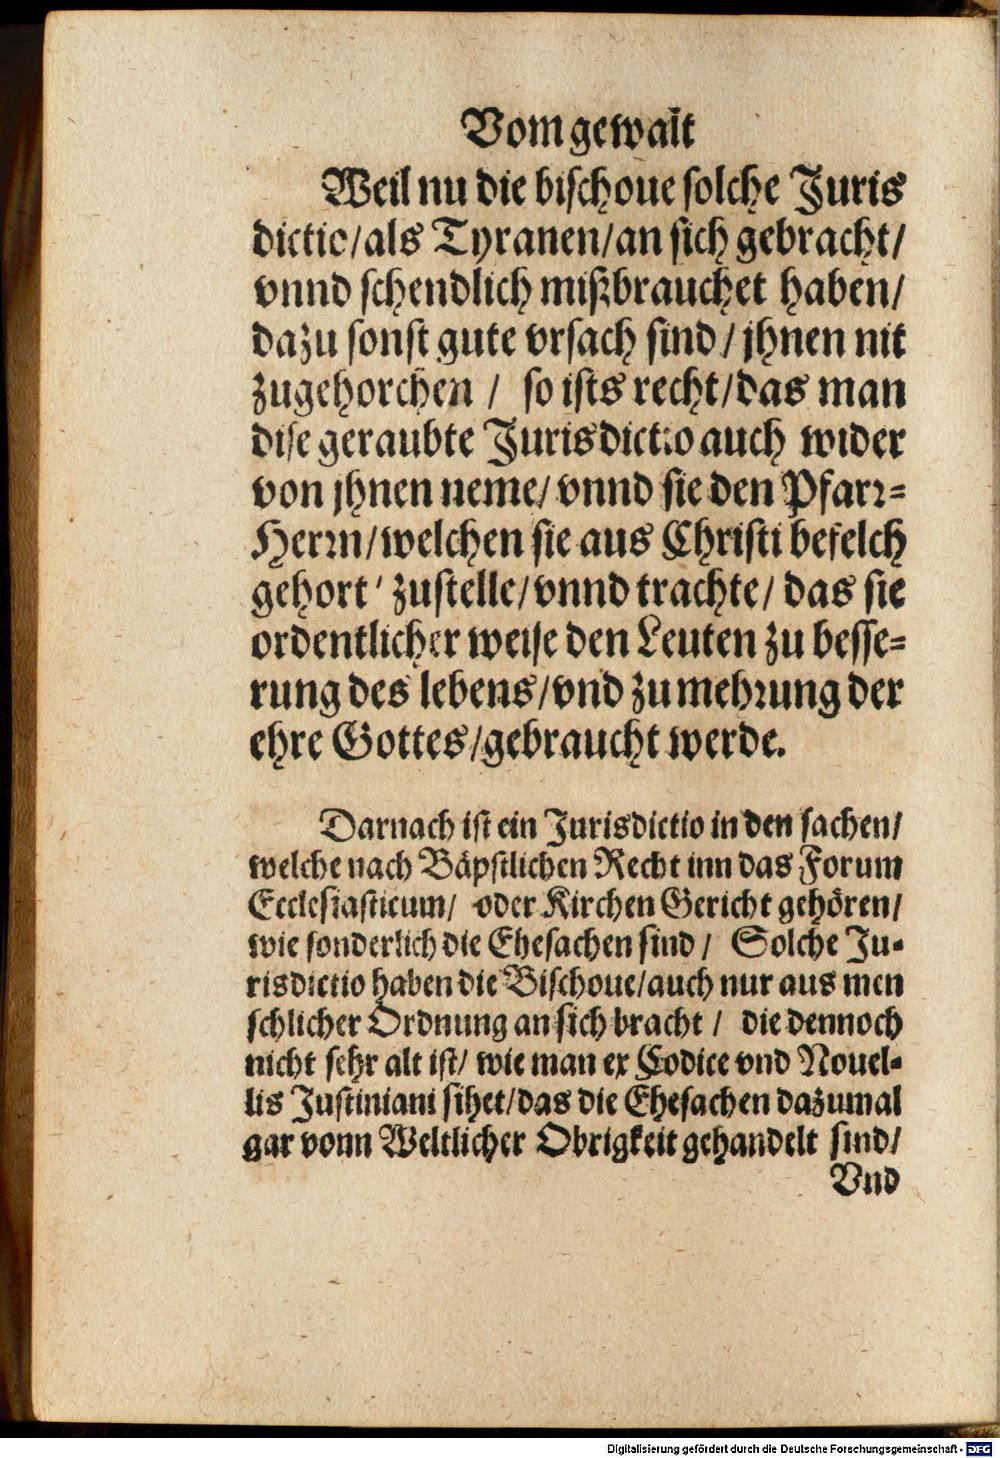 Vom gewalt
Weil nu die bischoue solche Juris
dictio/als Tyranen/an sich gebracht/
vnnd schendlich mißbrauchet haben/
dazu sonst gute vrsach sind/jhnen nit
zugehorchen / so ists recht/das man
dise geraubte Jurisdictio auch wider
von jhnen neme/vnnd sie den Pfarr-
Herrn/welchen sie aus Christi befelch
gehort/zustelle/vnnd trachte/das sie
ordentlicher weise den Leuten zu besse-
rung des lebens/vnd zu mehrung der
ehre Gottes/gebraucht werde.
Darnach ist ein Jurisdictio in den sachen/
welche nach Bäpstlichen Recht inn das Forum
Ecclesiasticum/ oder Kirchen Gericht gehören/
wie sonderlich die Ehesachen sind / Solche Ju-
risdictio haben die Bischoue/auch nur aus men
schlicher Ordnung an sich bracht / die dennoch
nicht sehr alt ist/ wie man ex Codice vnd Nouel-
lis Justiniani sihet/das die Ehesachen dazumal
gar vonn Weltlicher Obrigkeit gehandelt sind/
Vnd
Digitalisierung gefördert durch die Deutsche Forschungsgemeinschaft - DFG